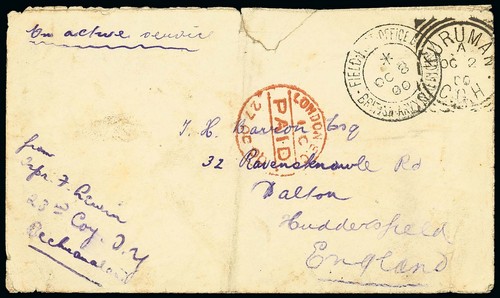 On active service
FIELD POST OFFICE
BRITISH ARMY S. AFRICA
OC
00
KURUMAN
A
OC 2
00
C.G.H
LONDON
PAID
27 OC
J. H. Barron Esq
32 Ravensknowle Rd
Dalton
Huddersfield
England
from
Corpr. F. Lewin
23rd Coy. I. Y
Bechuanaland